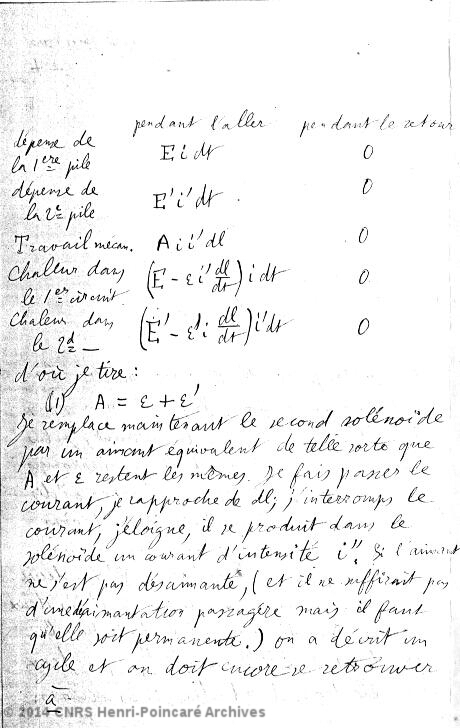 pendant l'aller pendant le retour
dépense de
la 1ère pile E i dt 0
dépense de
la 2e pile E' i' dt . 0
Travail mécan. A i i' dl 0
Chaleur dans
le 1er circuit (E - ε i' dl/dt) i dt 0
Chaleur dans
le 2d — (E' - ε' i dl/dt) i' dt 0
d'où je tire :
(1) A = ε + ε'
Je remplace maintenant le second solénoïde
par un aimant équivalent de telle sorte que
A et ε restent les mêmes. Je fais passer le
courant, je rapproche de dl; j'interromps le
courant, j'éloigne, il se produit dans le
solénoïde un courant d'intensité i''. Si l'aimant
ne s'est pas désaimanté, (et il ne suffirait pas
d'une désaimantation passagère mais il faut
qu'elle soit permanente.) on a décrit un
cycle et on doit encore se retrouver
à
© 2014 CNRS Henri-Poincaré Archives